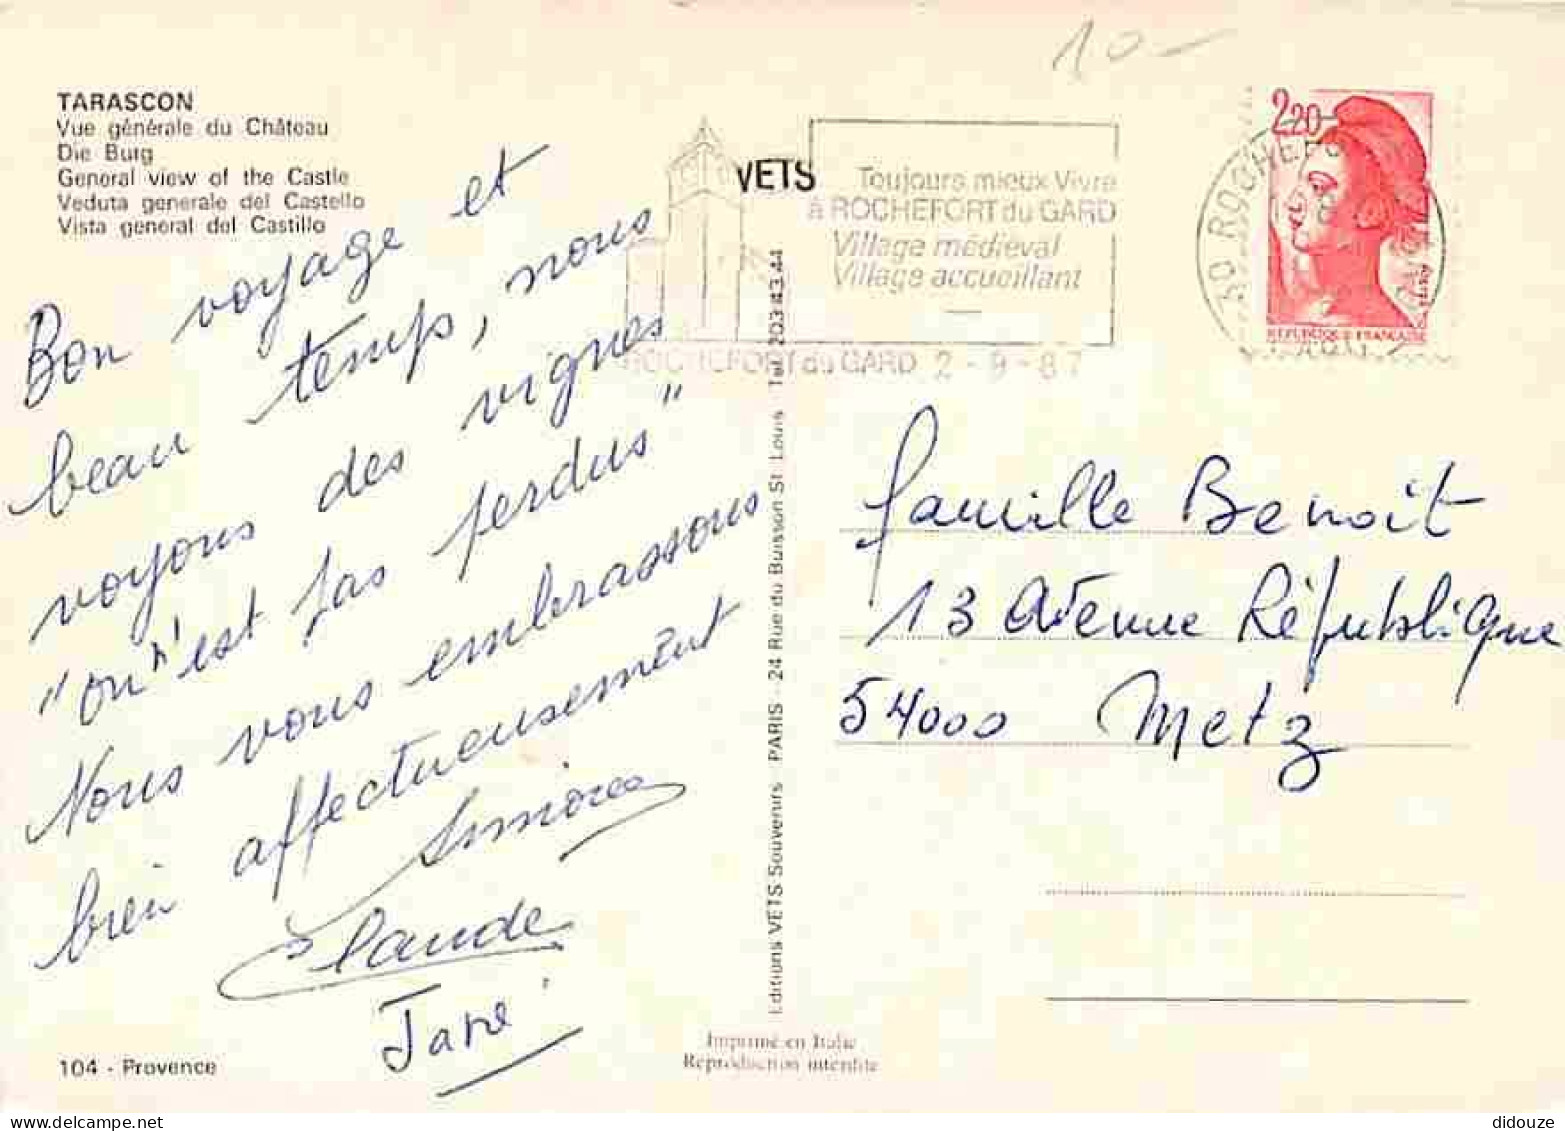 10 -
TARASCON
Vue générale du Château
Die Burg
General view of the Castle
Veduta generale del Castello
Vista general del Castillo
VETS
Toujours mieux Vivre
à ROCHEFORT du GARD
Village médiéval
Village accueillant
ROCHEFORT du GARD 2 - 9 - 87
2,20
30 ROCHEFO
REPUBLIQUE FRANÇAISE
Bon voyage et
beau temps, nous
voyons des vignes
"on n'est pas perdus"
Nous vous embrassons
bien affectueusement
Claude
Editions VETS Souvenirs PARIS - 24 Rue du Buisson St Louis Tel. 203 43 44
famille Benoit
13 Avenue République
54000 Metz
104 - Provence
Imprimé en Italie
Reproduction interdite
didouze